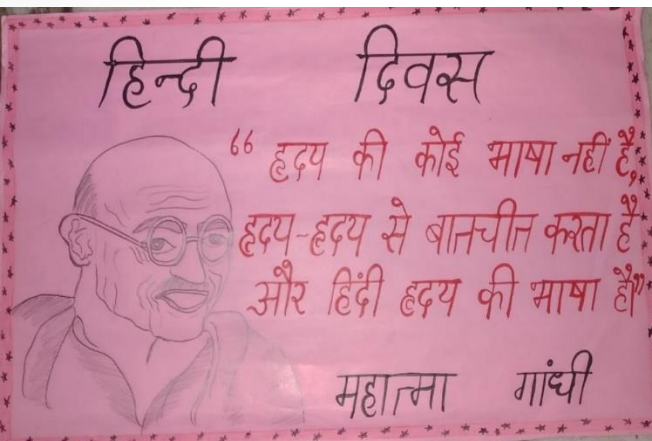 हिन्दी दिवस
“ हृदय की कोई भाषा नहीं है,
हृदय-हृदय से बातचीत करता है
और हिंदी हृदय की भाषा है।”
महात्मा गांधी